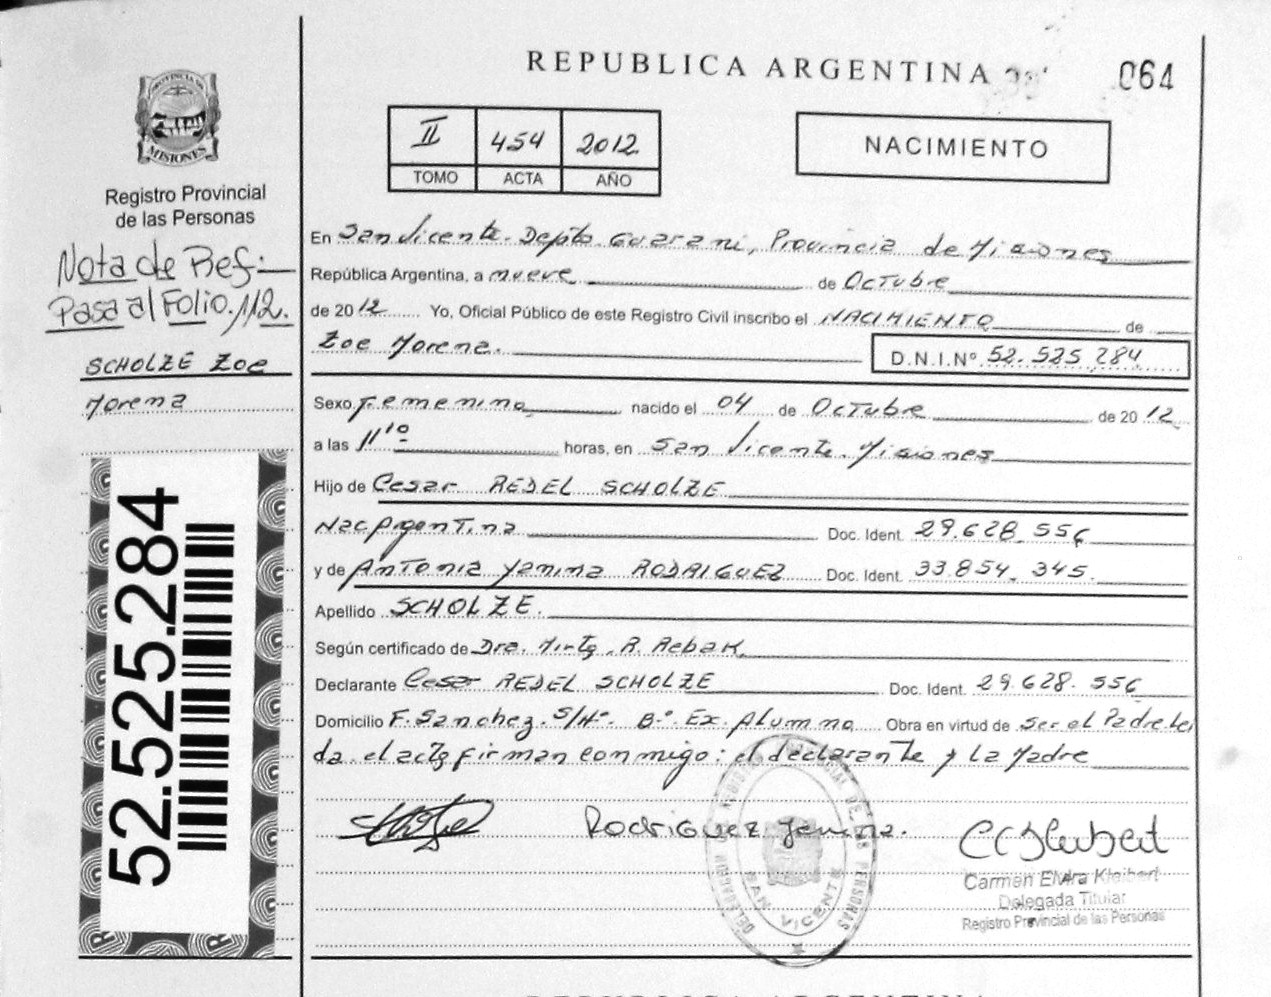 REPUBLICA ARGENTINA
064
PROVINCIA DE
MISIONES
Registro Provincial
de las Personas
Nota de Ref.
Pasa al Folio. 112.
SCHOLZE Zoe
Morena
52.525.284
II 454 2012
TOMO ACTA AÑO
NACIMIENTO
En San Vicente. Depto. Guarani, Provincia de Misiones
República Argentina, a nueve de Octubre
de 2012 Yo, Oficial Público de este Registro Civil inscribo el NACIMIENTO de
Zoe Morena. D.N.I.Nº 52.525.284
Sexo Femenino nacido el 04 de Octubre de 2012
a las 11¹⁰ horas, en San Vicente. Misiones
Hijo de Cesar REDEL SCHOLZE
Nac Argentina Doc. Ident. 29.628.556
y de ANTONIA Yanina RODRIGUEZ Doc. Ident. 33.854.345.
Apellido SCHOLZE.
Según certificado de Dra. Mirta. R. Rebak
Declarante Cesar REDEL SCHOLZE Doc. Ident. 29.628.556
Domicilio F. Sanchez. S/Nº. Bº. Ex. Alumno Obra en virtud de Ser el Padre. Lei
da el acta firman conmigo: el declarante y La Madre
Rodriguez Yanina.
SAN VICENTE
Carmen Elvira Kleibert
Delegada Titular
Registro Provincial de las Personas
REPUBLICA ARGENTINA